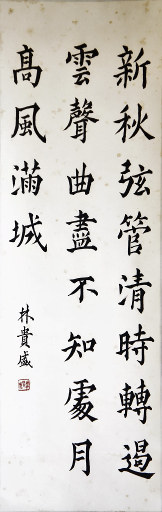 新秋弦管清時轉遏
雲聲曲盡不知處月
髙風滿城
林貴盛